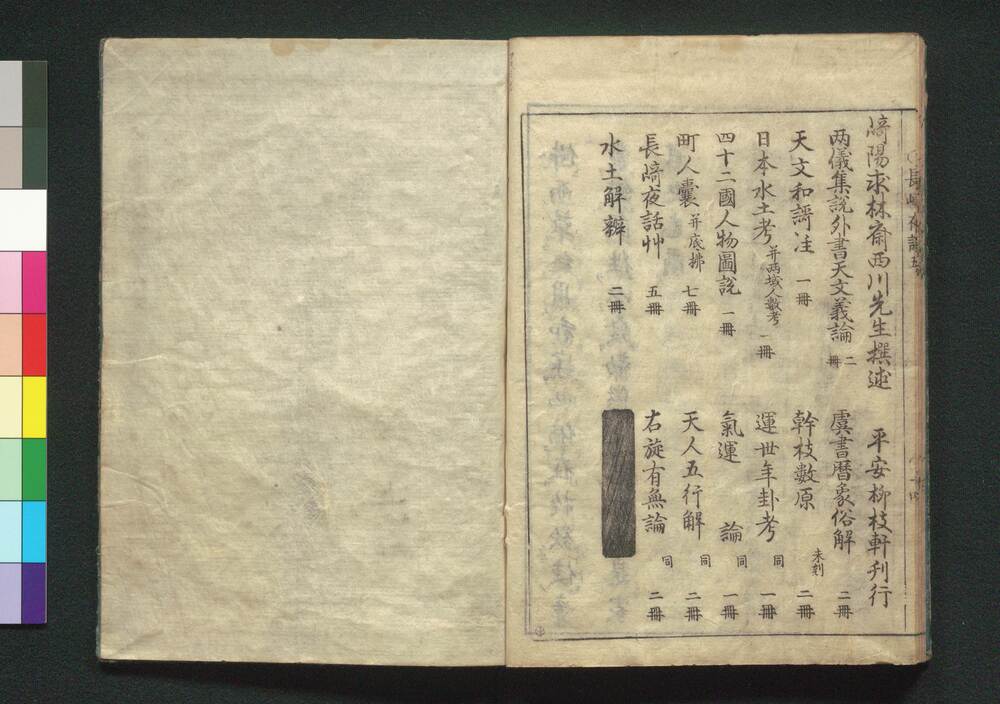 﨑陽求林齋西川先生撰述　平安柳枝軒刋行
两儀集說外書天文義論　二冊
虞書暦象俗解　二冊
天文和謌注　一冊
幹枝數原　未刻　二冊
日本水土考　并两域人數考　一冊
運世年卦考　同　一冊
四十二國人物圖說　一冊
氣運論　同　一冊
町人囊　并底拂　七冊
天人五行解　同　二冊
長﨑夜話艸　五冊
右旋有無論　同　二冊
水土解辯　二冊